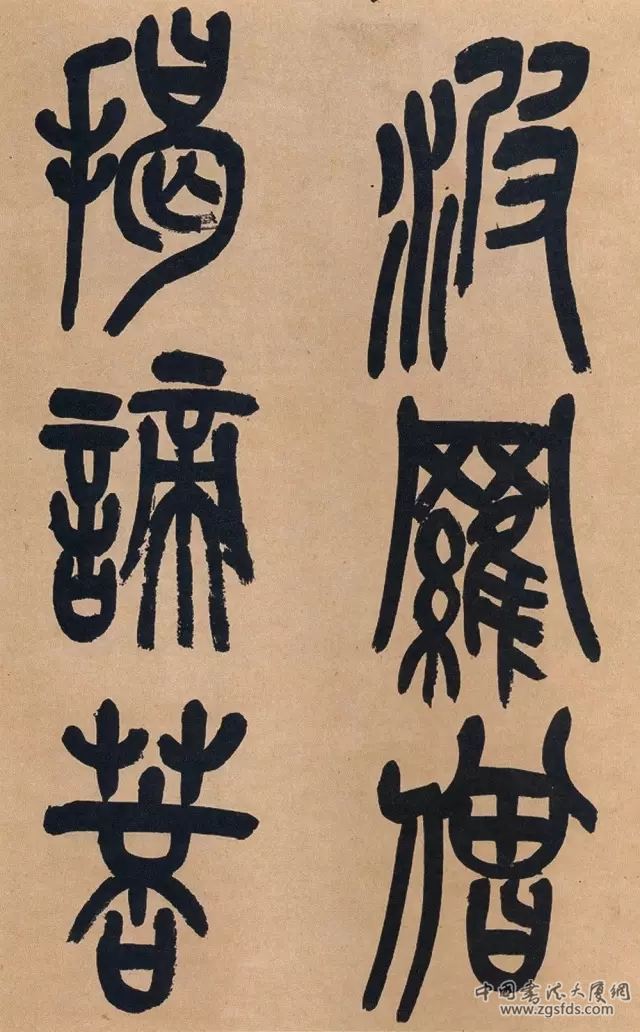 波羅僧
揭諦菩
中国书法大厦網
www.zgsfds.com